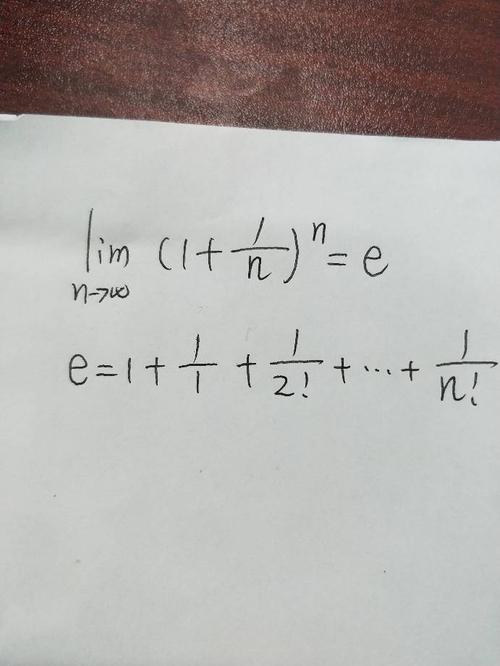 lim n→∞ (1+1/n)^n = e
e=1+1/1+1/2!+⋯+1/n!